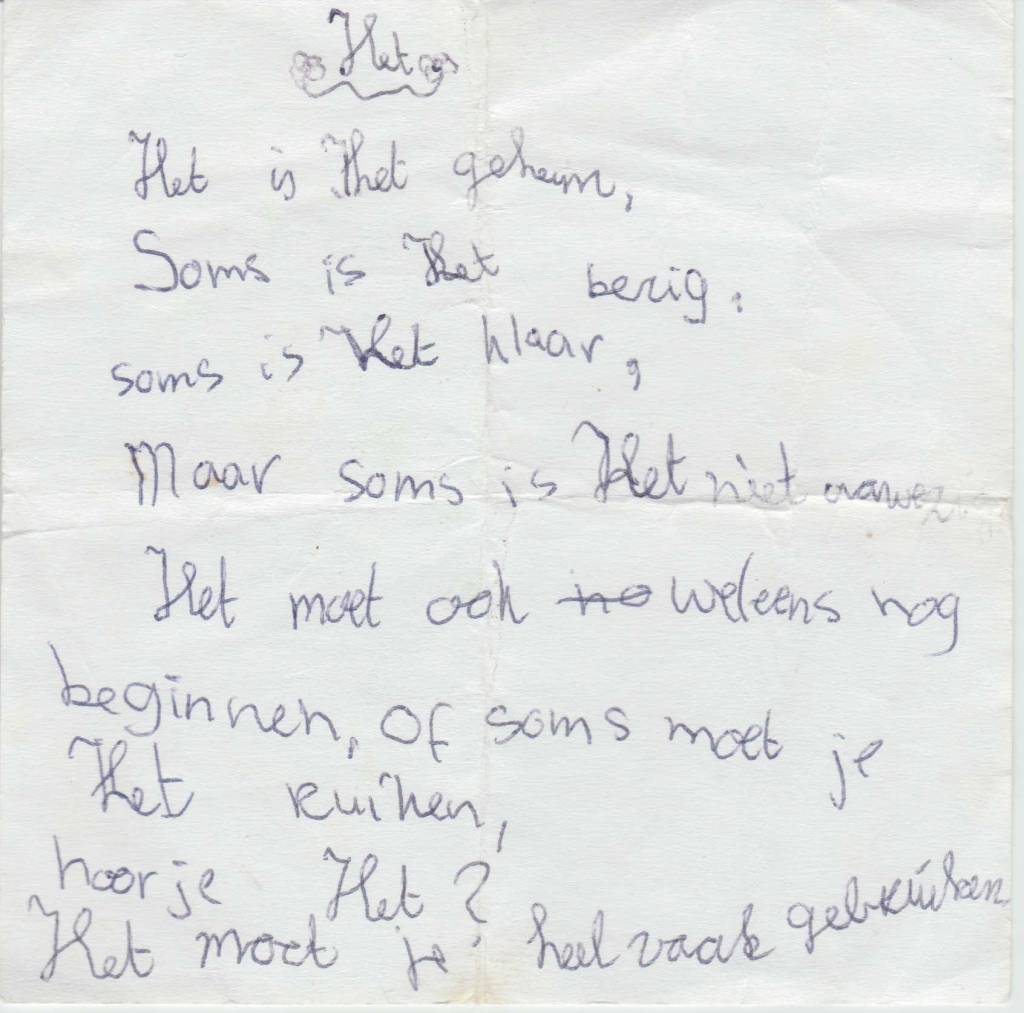 Het
Het is Het geheim,
Soms is Het bezig.
soms is Het klaar,
Maar soms is Het niet
Het moet ook no weleens nog
beginnen, of soms moet je
Het ruiken,
hoor je Het?
Het moet je heel vaak gebruiken